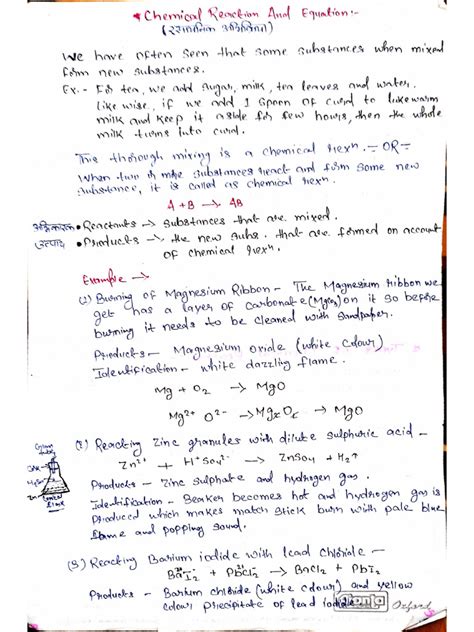 * Chemical Reaction And Equation:-
(रासायनिक अभिक्रिया)
We have often seen that some substances when mixed
form new substances.
Ex.- For tea, we add sugar, milk, tea leaves and water.
like wise, if we add 1 spoon of curd to lukewarm
milk and keep it aside for few hours, then the whole
milk turns into curd.
This thorough mixing is a chemical rexⁿ. - OR -
When two or more substances react and form some new
substance, it is called as chemical rexⁿ.
A + B → AB
अभिकारक • Reactants → Substances that are mixed.
उत्पाद • Products → the new subs. that are formed on account
of chemical rexⁿ.
Example →
(1) Burning of Magnesium Ribbon - The Magnesium ribbon we
get has a layer of carbonate (MgCO₃) on it so before
burning it needs to be cleaned with sandpaper.
Products - Magnesium oxide (white colour)
Identification - white dazzling flame.
Mg + O₂ → MgO
Mg²⁺ O²⁻ → → MgO
(2) Reacting Zinc granules with dilute sulphuric acid -
Zn²⁺ + H⁺SO₄²⁻ → ZnSO₄ + H₂↑
Products - Zinc sulphate and hydrogen gas.
Identification - Beaker becomes hot and hydrogen gas is
produced which makes match stick burn with pale blue
flame and popping sound.
(3) Reacting Barium iodide with lead chloride -
BaI₂ + PbCl₂ → BaCl₂ + PbI₂
Products - Barium chloride (white colour) and yellow
colour precipitate of lead iodide
Oxford